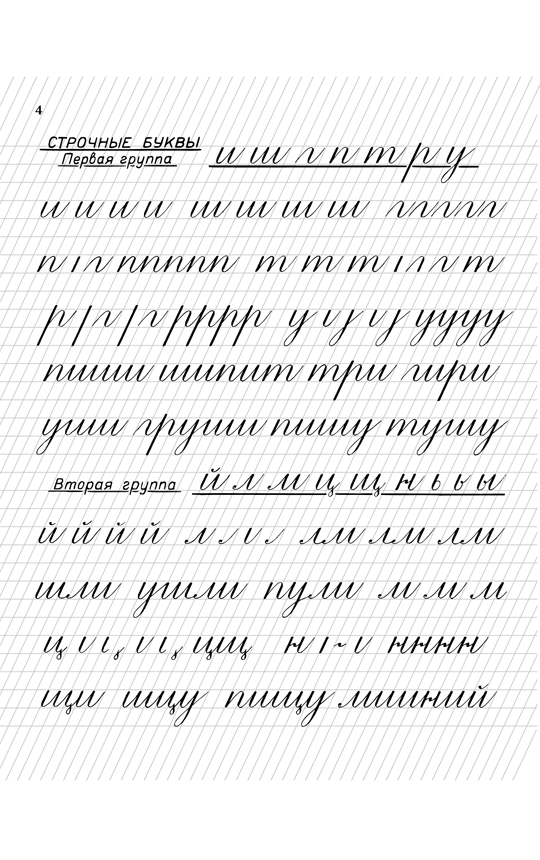 4
СТРОЧНЫЕ БУКВЫ
Первая группа и ш г п т р у
и и и и ш ш ш ш г г г г г
п г п п п п п т т т г т
р г г р р р р у у у у у
пиши шипит три гири
уши груши пишу тушу
Вторая группа й л м ц щ н ь ъ ы
й й й й л л лм лм лм
шли ушли пули м м м
ц ц щ н н н н н
щи ищу пищу лишний